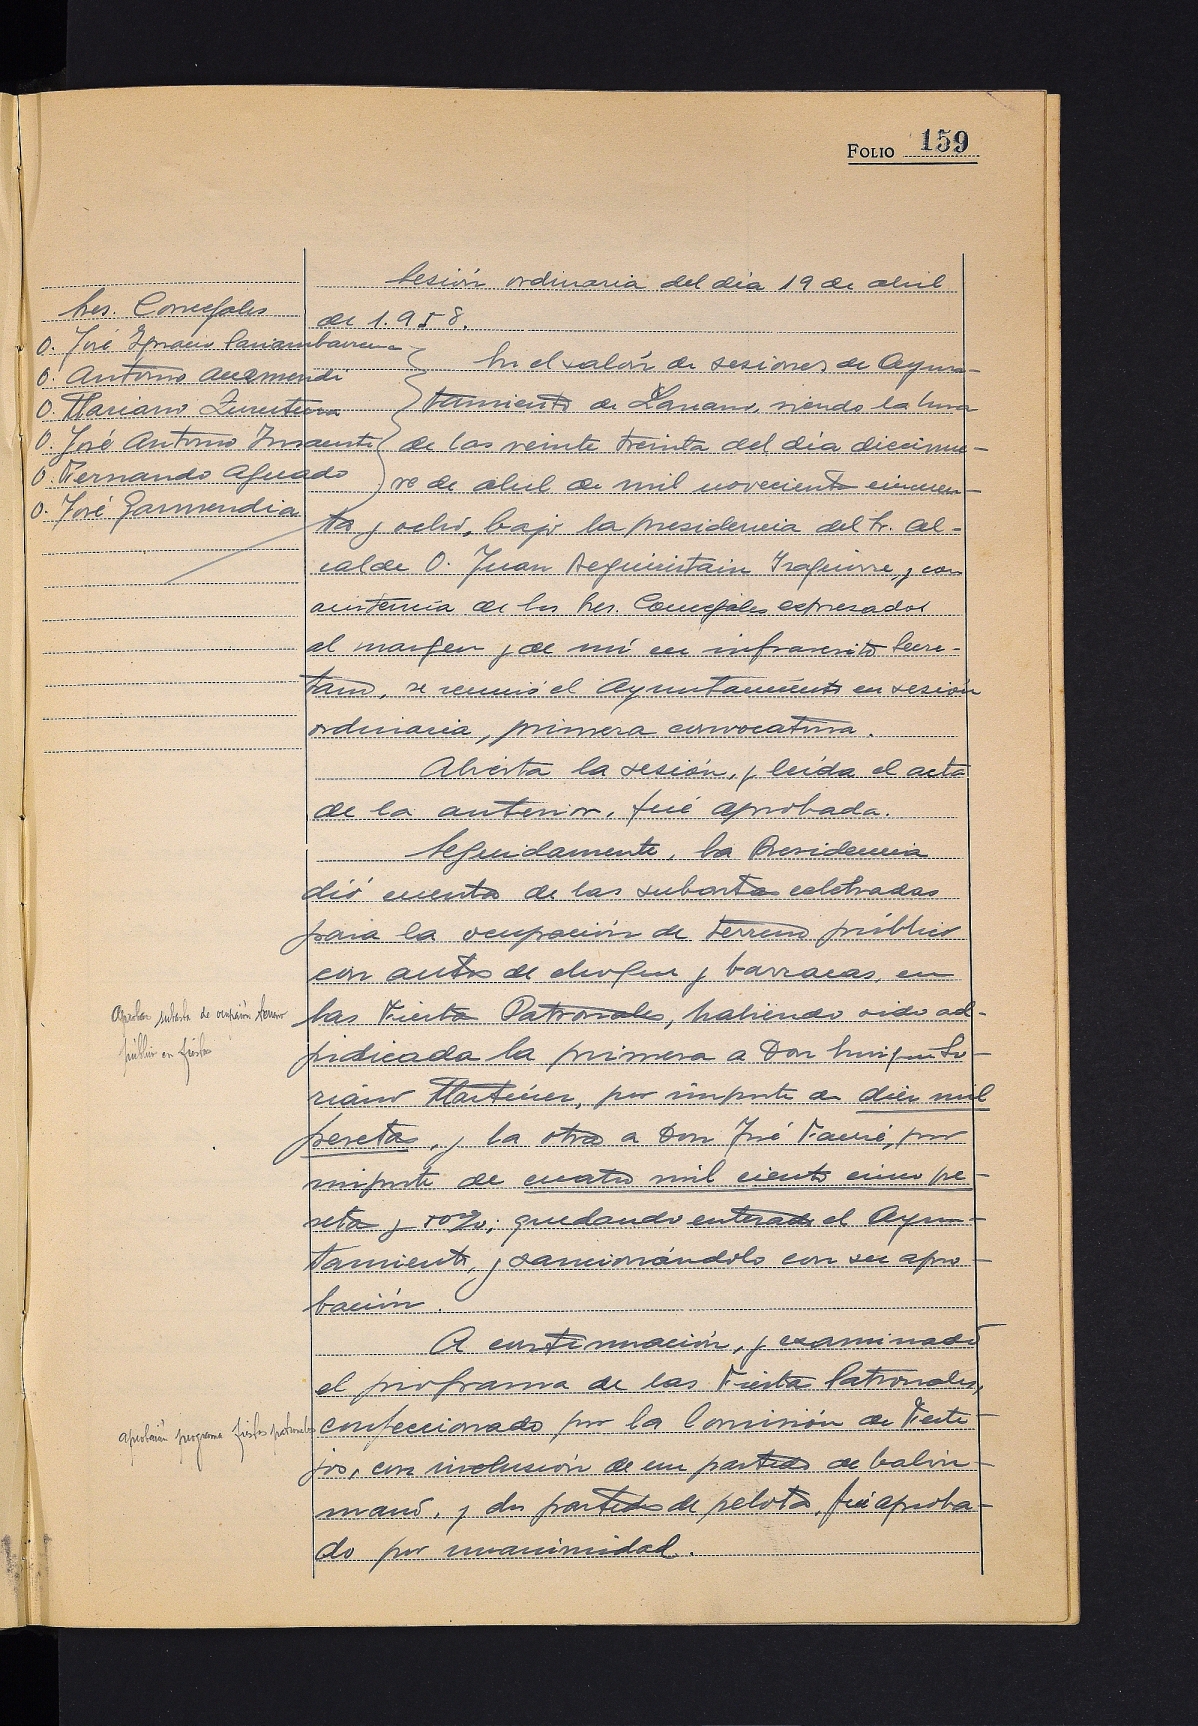 FOLIO 159
Sesión ordinaria del día 19 de abril
de 1.958.
Sres. Concejales
D. José Ignacio
D. Antonio
D. Mariano Zurutuza
D. José Antonio Insausti
D. Fernando Aguado
D. José Garmendia
En el salón de sesiones de Ayun-
tamiento de Lazcano, siendo la hora
de las veinte treinta del día diecinue-
ve de abril de mil novecientos cincuen-
ta y ocho, bajo la presidencia del Sr. Al-
calde D. Juan Aeguiristain Iraguirre, y con
asistencia de los Sres. Concejales expresados
al margen y de mí el infrascrito Secre-
tario, se reunió el Ayuntamiento en sesión
ordinaria, primera convocatoria.
Abierta la sesión, y leída el acta
de la anterior, fué aprobada.
Seguidamente, la Presidencia
dió cuenta de las subastas celebradas
para la ocupación de terreno público
con autos de choque y barracas, en
las Fiestas Patronales, habiendo sido ad-
judicada la primera a Don Enrique So-
riano Martínez, por importe de diez mil
pesetas, y la otra a Don José Fauré, por
importe de cuatro mil ciento cinco pe-
setas y 50%; quedando enterado el Ayun-
tamiento, y sancionándolo con su apro-
bación.
Aprobar subasta de ocupación terreno
público en fiestas
A continuación, y examinado
el programa de las Fiestas Patronales,
confeccionado por la Comisión de Feste-
jos, con inclusión de un partido de balón-
mano, y dos partidos de pelota, fué aproba-
do por unanimidad.
aprobación programa fiestas patronales